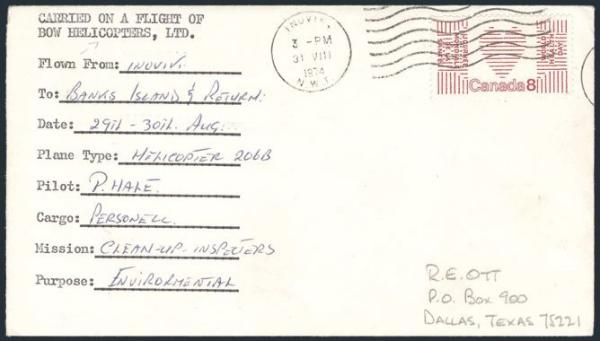 CARRIED ON A FLIGHT OF
BOW HELICOPTERS, LTD.
Flown From: INUVIK
To: BANKS ISLAND & RETURN.
Date: 29th - 30th AUG.
Plane Type: HELICOPTER 206B
Pilot: P. HALE.
Cargo: PERSONELL.
Mission: CLEAN-UP-INSPECTERS
Purpose: ENVIRORMENTAL
INUVIK
3 -PM
31 VIII
1974
N.W.T.
WORLD
HEALTH
DAY
Canada 8
R.E. OTT
P.O. BOX 900
DALLAS, TEXAS 75221